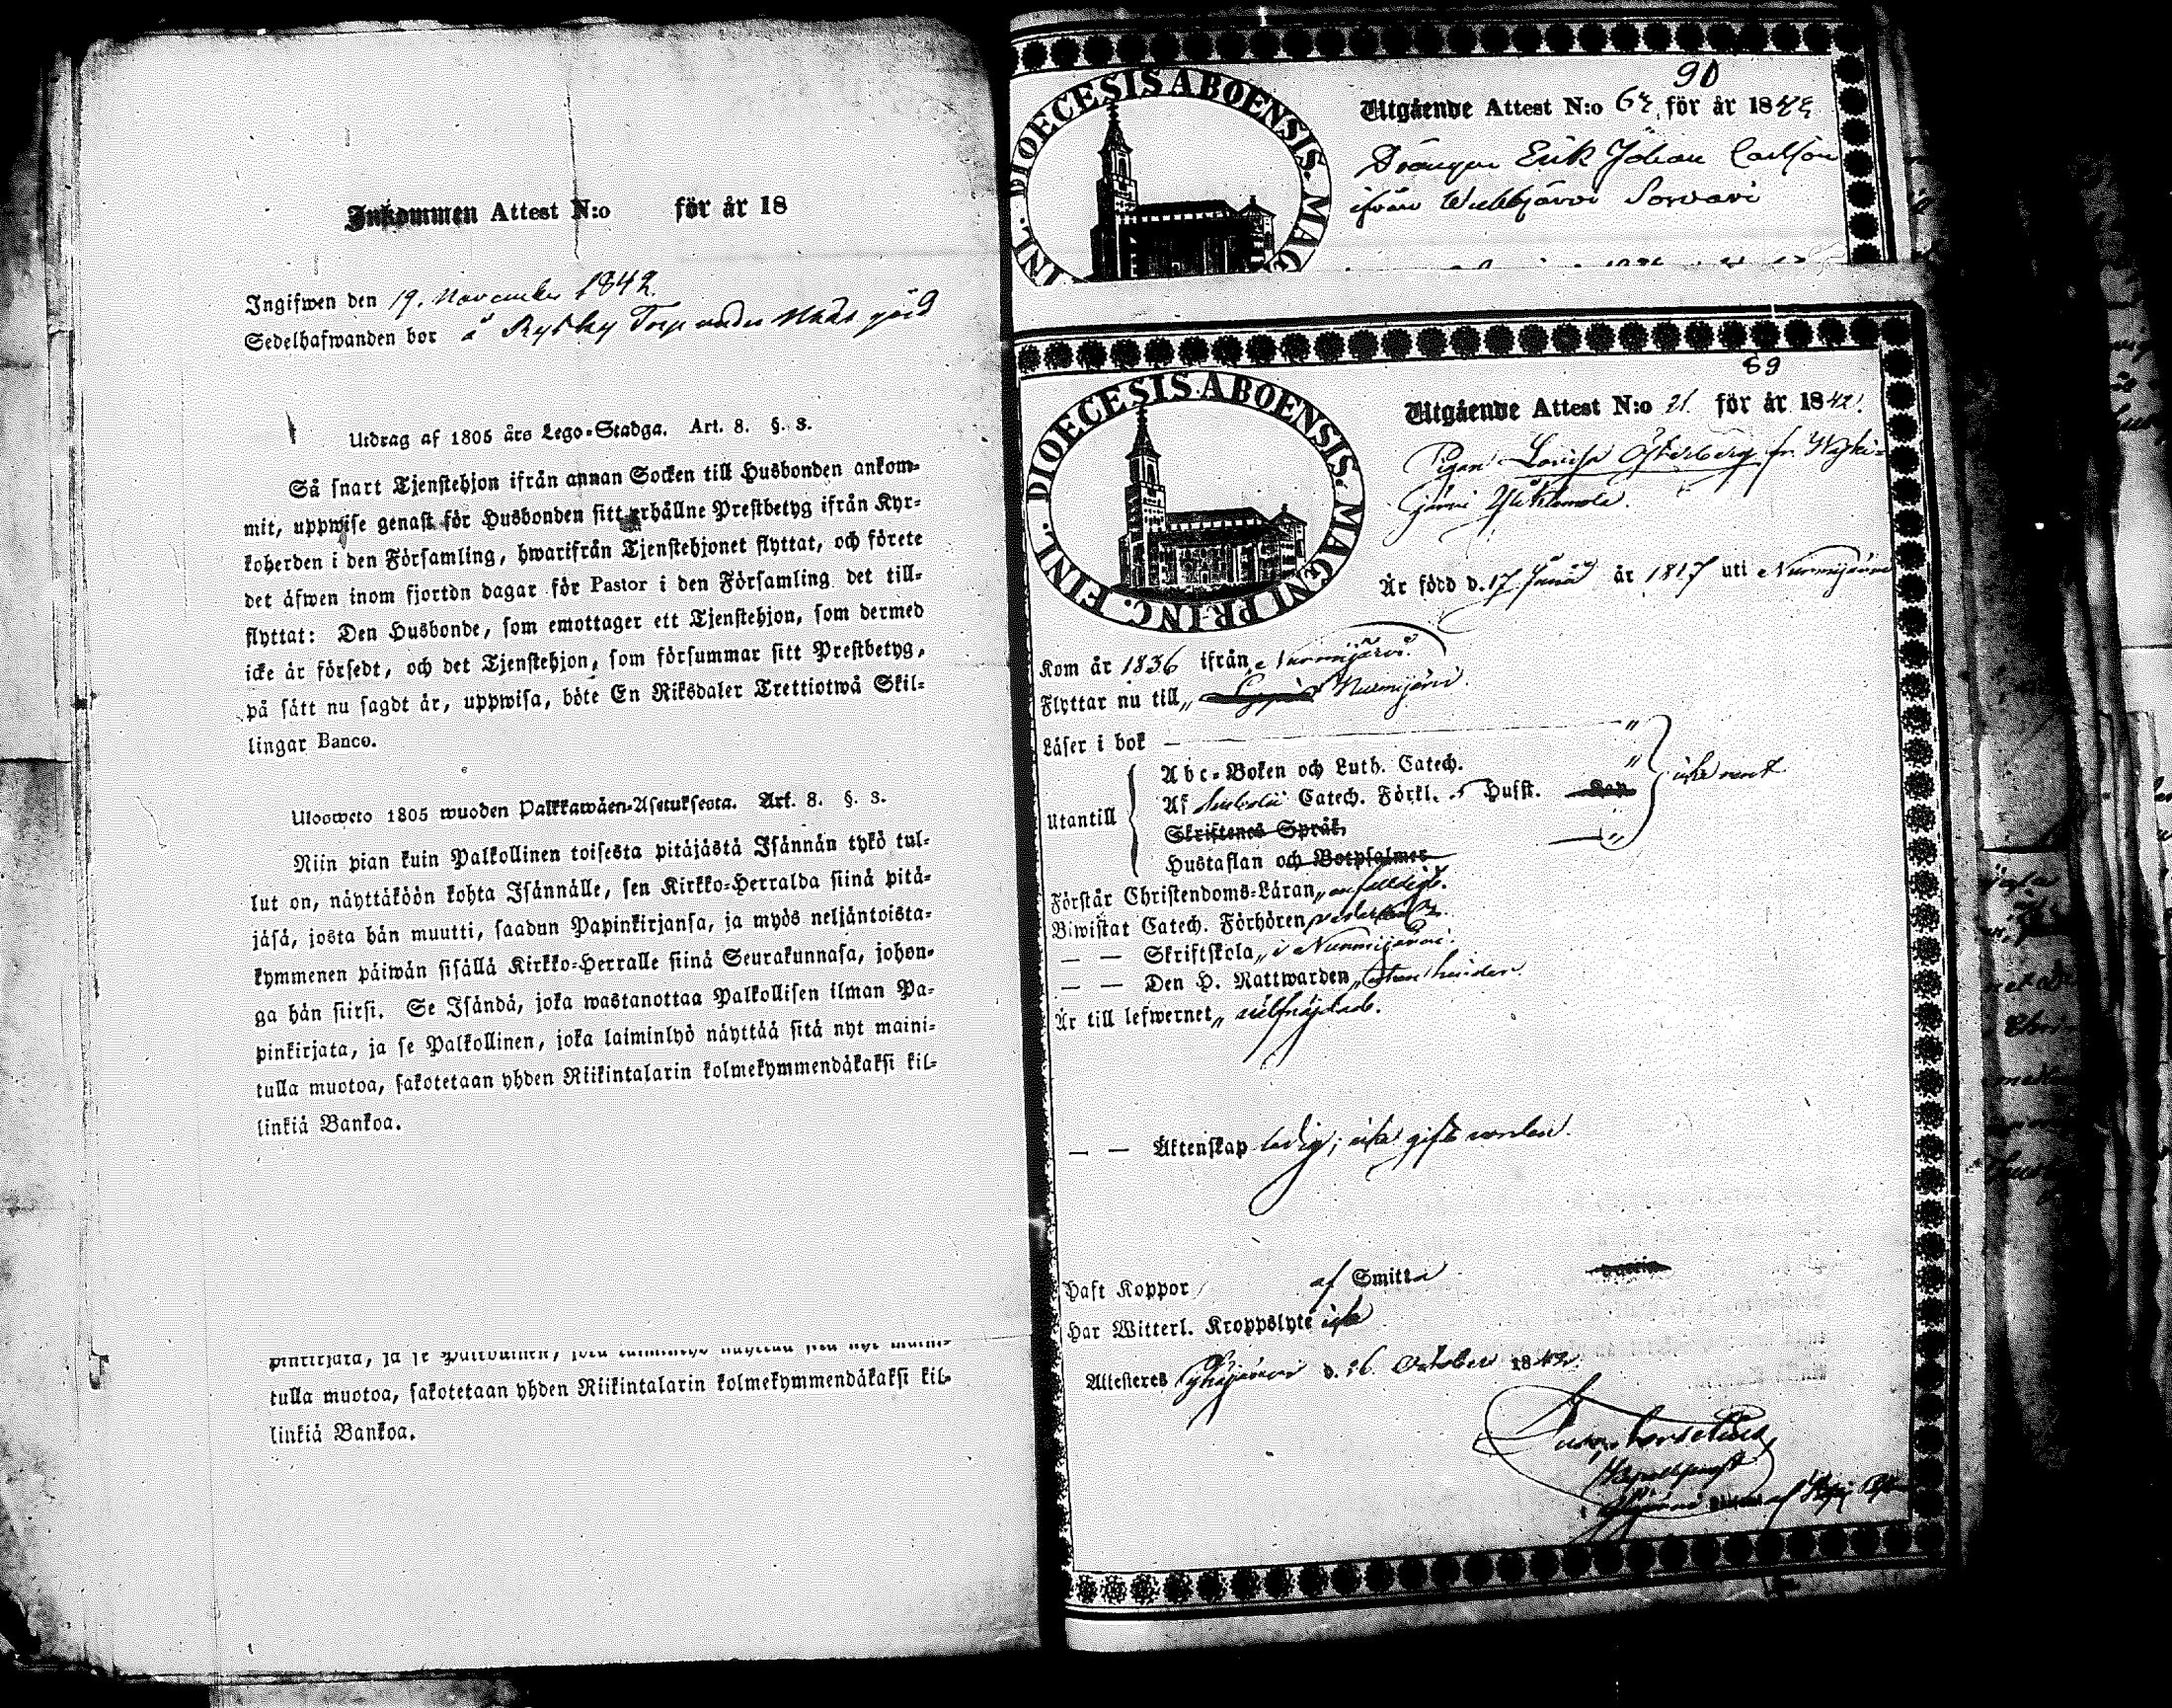 Inkommen Attest N:o för år 18
Ingifwen den 19. November 1842.
Sedelhafwanden bor å Rykby Torp under Näs gård
Utdrag af 1805 års Lego-Stadga. Art. 8. §. 3.
Så snart Tjenstehjon ifrån annan Socken till Husbonden ankom-
mit, uppwise genast för Husbonden sitt erhållne Prestbetyg ifrån Kyr-
koherden i den Församling, hwarifrån Tjenstehjonet flyttat, och förete
det äfwen inom fjorton dagar för Pastor i den Församling det till-
flyttat: Den Husbonde, som emottager ett Tjenstehjon, som dermed
icke är försedt, och det Tjenstehjon, som försummar sitt Prestbetyg,
på sätt nu sagdt är, uppwisa, böte En Riksdaler Trettiotwå Skil-
lingar Banco.
Uloosweto 1805 wuoden Palkkawäen-Asetuksesta. Art. 8. §. 3.
Niin pian kuin Palkollinen toisesta pitäjästä Isännän tykö tul-
lut on, näyttäköön kohta Isännälle, sen Kirkko-Herralda siinä pitä-
jäsä, josta hän muutti, saadun Papinkirjansa, ja myös neljäntoista-
kymmenen päiwän sisällä Kirkko-Herralle siinä Seurakunnasa, johon-
ga hän siirsi. Se Isändä, joka wastanottaa Palkollisen ilman Pa-
pinkirjata, ja se Palkollinen, joka laiminlyö näyttää sitä nyt maini-
tulla muotoa, sakotetaan yhden Riikintalarin kolmekymmendäkaksi kil-
linkiä Bankoa.
pinkirjata, ja se Palkollinen, joka laiminlyö näyttää sitä nyt maini-
tulla muotoa, sakotetaan yhden Riikintalarin kolmekymmendäkaksi kil-
linkiä Bankoa.
90
DIOECESIS ABOENSIS. MAG FINL.
Utgående Attest N:o för år 18
Drängen Erik Johan Carlson
ifrån Sorvari
89
DIOECESIS ABOENSIS. MAGNI PRINC. FINL.
Utgående Attest N:o 21. för år 1842.
Pigan Lovisa Österberg fr.
Är född d. 17 Junii år 1817 uti Nurmijärvi
Kom år 1836 ifrån Nurmijärvi.
Flyttar nu till Nurmijärvi.
Läser i bok
Utantill
Abc-Boken och Luth. Catech.
Af Catech. Förkl. Husst.
Skriftenes Språk,
Hustaflan och Botpsalmer
icke rent
Förstår Christendoms-Läran enfaldigt.
Biwistat Catech. Förhören
— — Skriftskola i Nurmijärvi.
— — Den H. Nattwarden
Är till lefwernet wälfrejdad.
— — Äktenskap ledig; icke gift worden.
Haft Koppor af Smitta
Har Witterl. Kroppslyte icke
Attesteres d. 26. October 1842